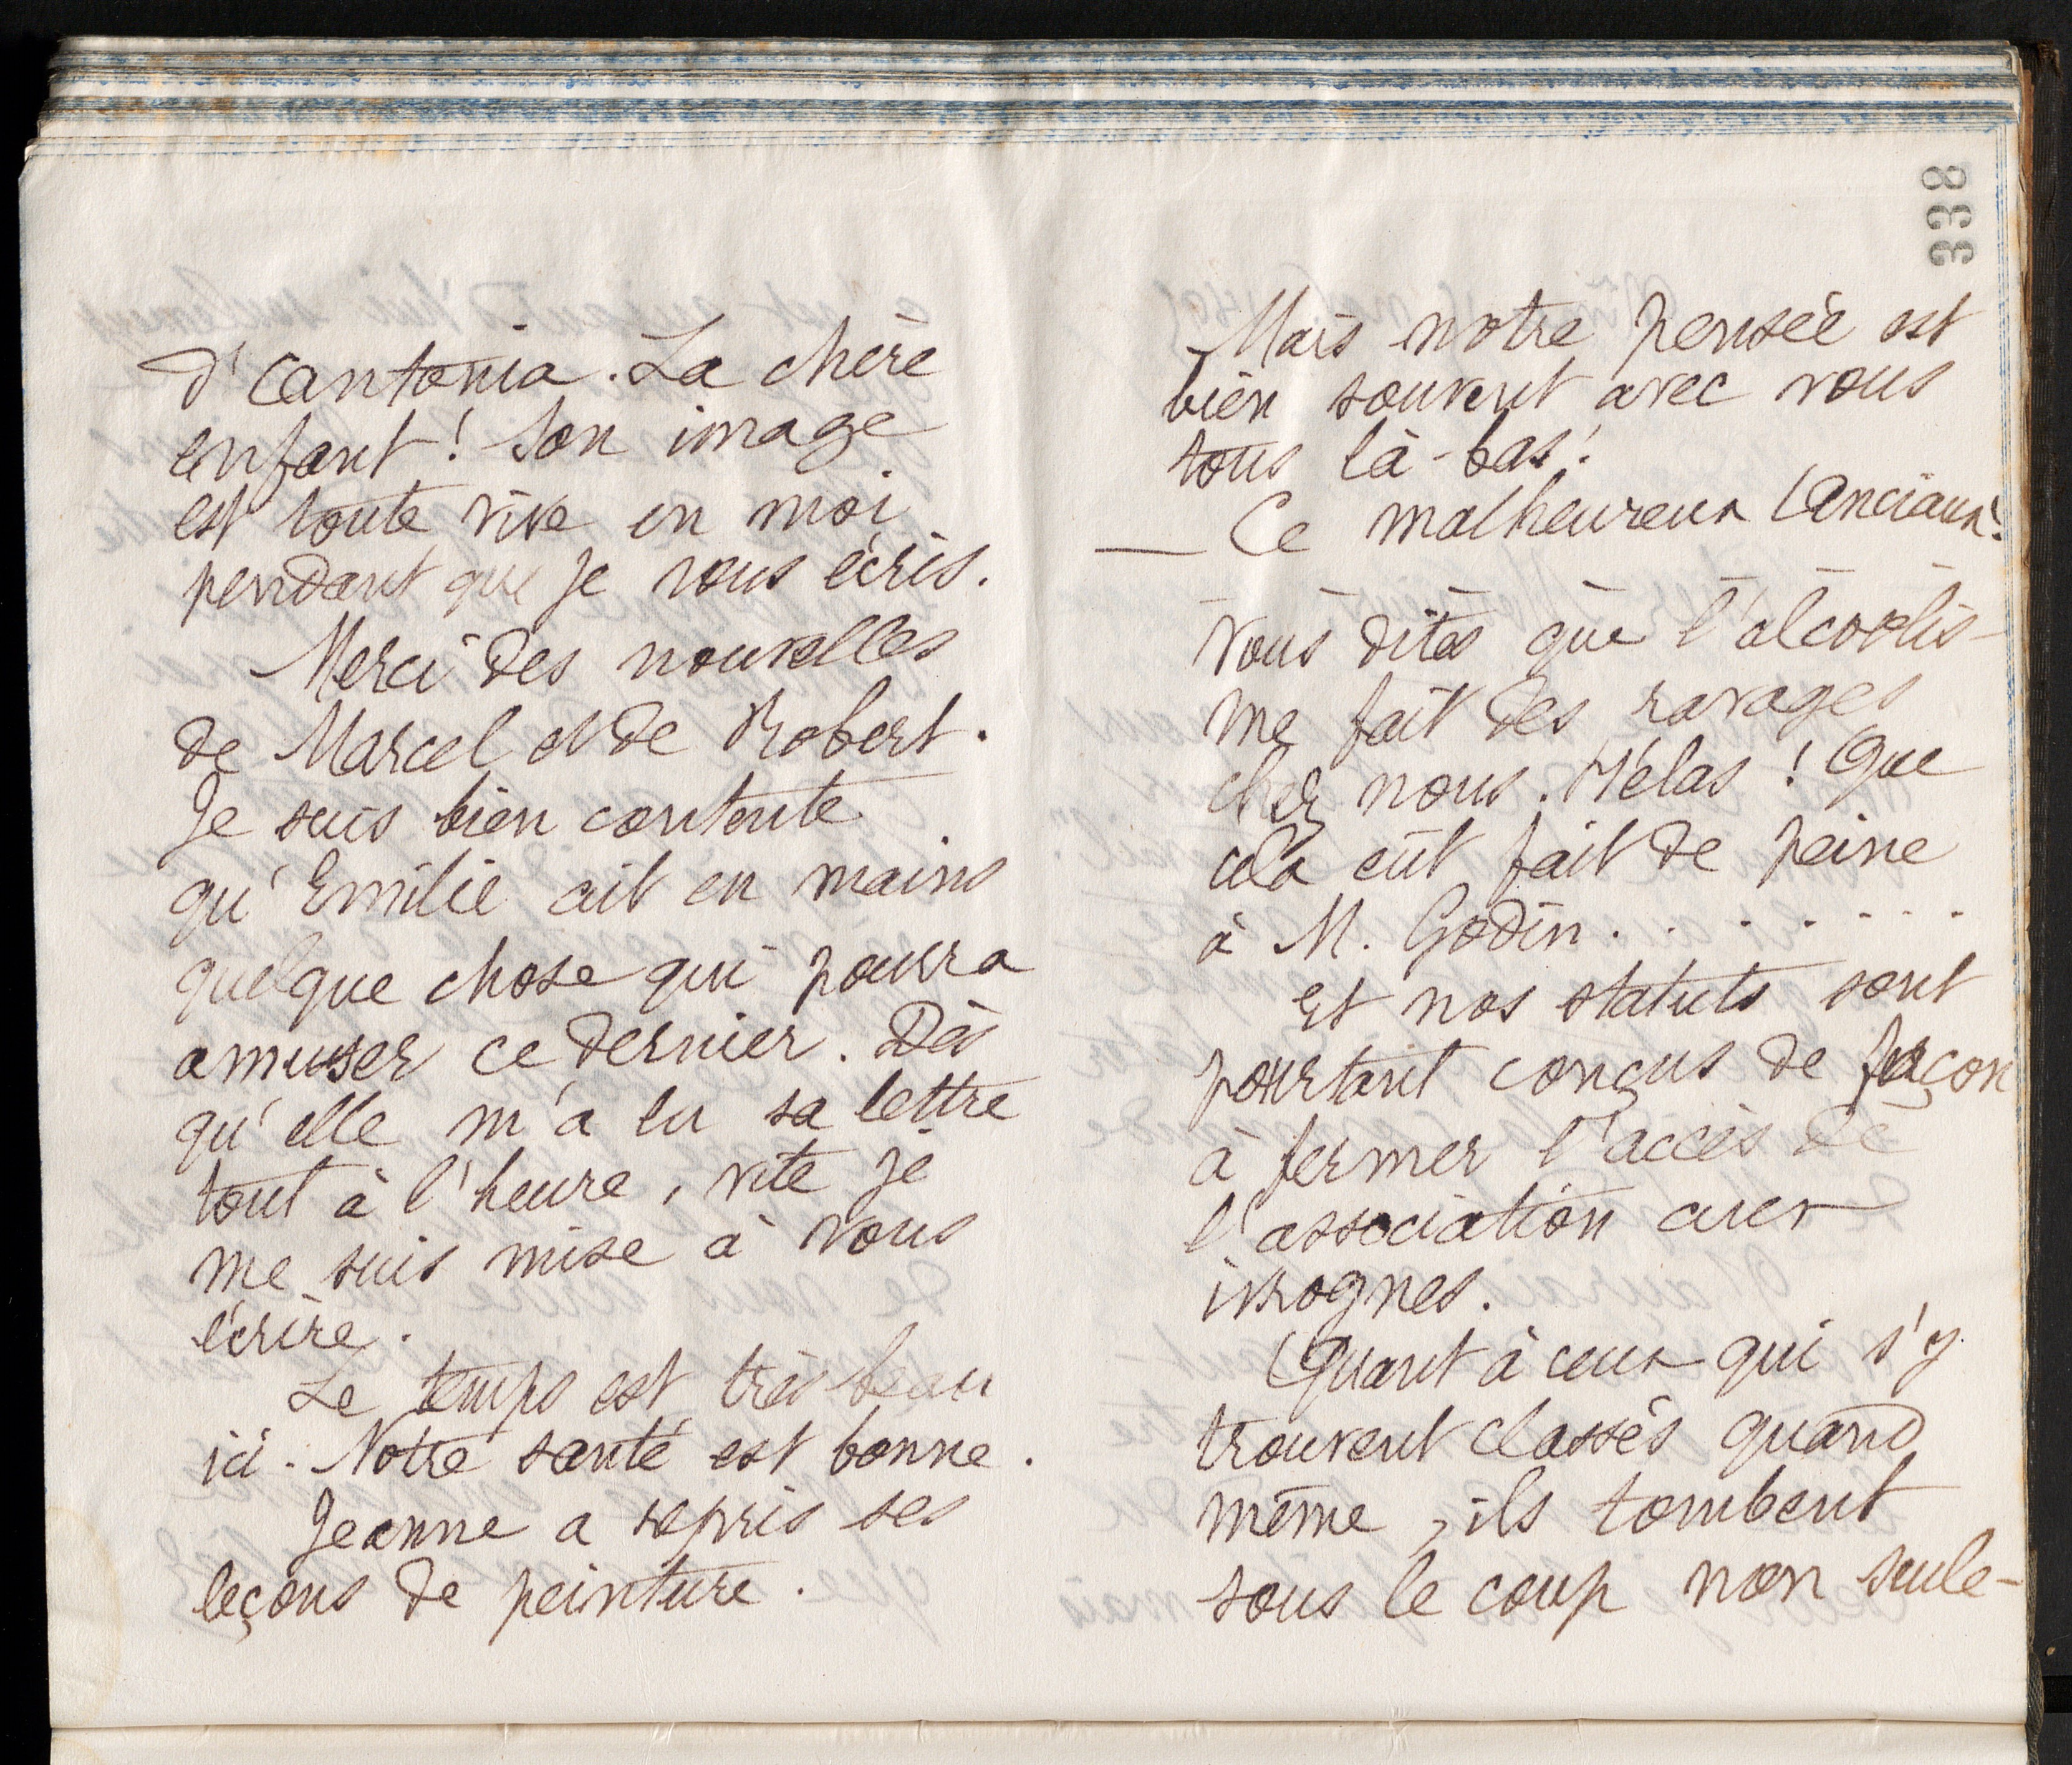 d'Cantonia. La chère
enfant ! Son image
est toute vive en moi
pendant que je vous écris.
Merci des nouvelles
de Marcel et de Robert.
Je suis bien contente
qu'Emilie ait en mains
quelque chose qui pourra
amuser ce dernier. Dès
qu'elle m'a lu sa lettre
tout à l'heure, vite je
me suis mise à vous
écrire.
Le temps est très beau
ici. Notre santé est bonne.
Jeanne a repris ses
leçons de peinture.
338
Mais notre pensée est
bien souvent avec vous
tous là-bas !
— Ce malheureux Lanciaux !
Vous dites que l'alcoolis-
me fait des ravages
chez nous. Hélas ! Que
cela eût fait de peine
à M. Godin. . . . . . .
Et nos statuts sont
pourtant conçus de façon
à fermer l'accès de
l'association aux
ivrognes.
Quant à ceux qui s'y
trouvent classés quand
même, ils tombent
sous le coup non seule-